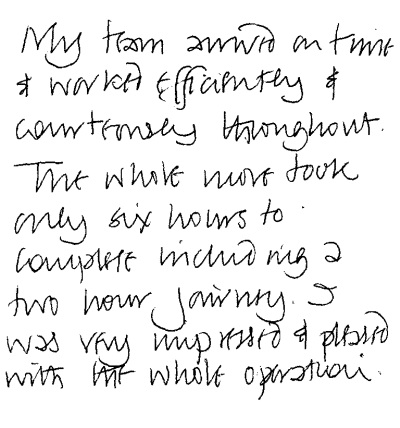 My team arrived on time
& worked efficiently &
courteously throughout.
The whole move took
only six hours to
complete including a
two hour journey. I
was very impressed & pleased
with the whole operation.